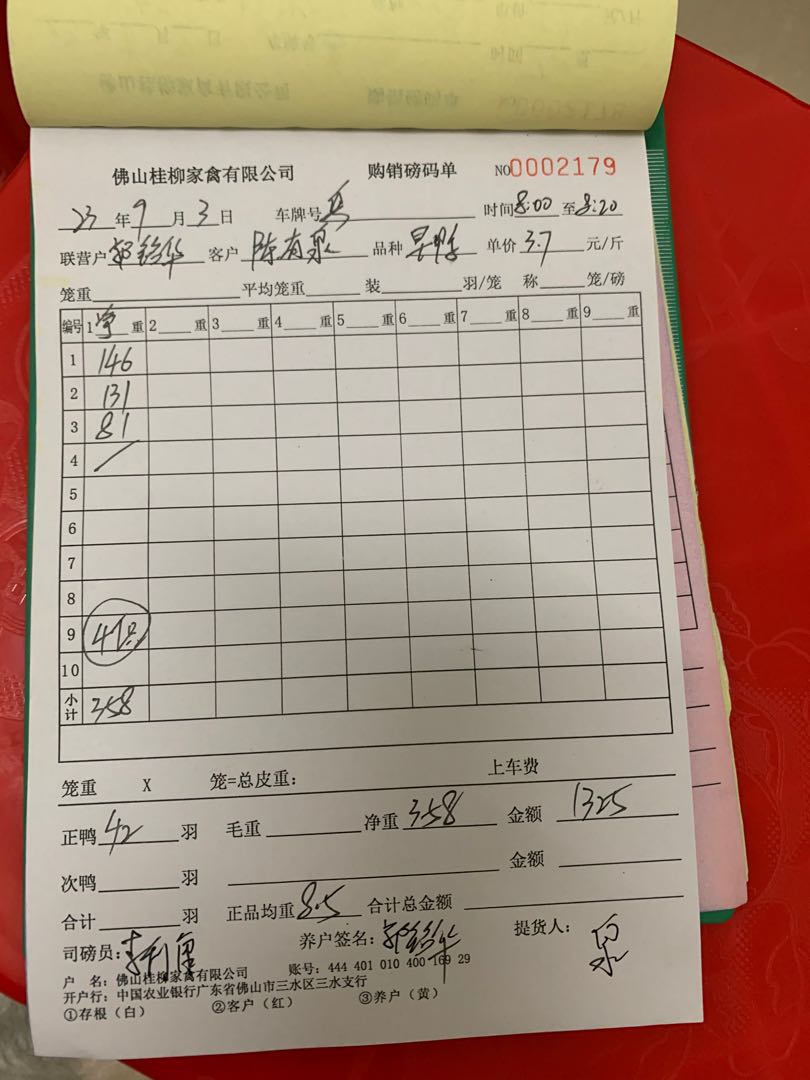 佛山桂柳家禽有限公司 购销磅码单 NO0002179
23年9月3日 车牌号 时间8:00至8:20
联营户 客户陈有泉 品种 单价3.7元/斤
笼重 平均笼重 装 羽/笼 称 笼/磅
编号 1净重 2 重 3 重 4 重 5 重 6 重 7 重 8 重 9 重
1 146
2 131
3 81
4 /
5
6
7
8
9
10
小计 358
笼重 X 笼=总皮重: 上车费
正鸭42羽 毛重 净重358 金额1325
次鸭 羽 金额
合计 羽 正品均重8.5 合计总金额
司磅员: 养户签名: 提货人: 泉
户 名:佛山桂柳家禽有限公司 账号:444 401 010 400 169 29
开户行:中国农业银行广东省佛山市三水区三水支行
①存根(白) ②客户(红) ③养户(黄)